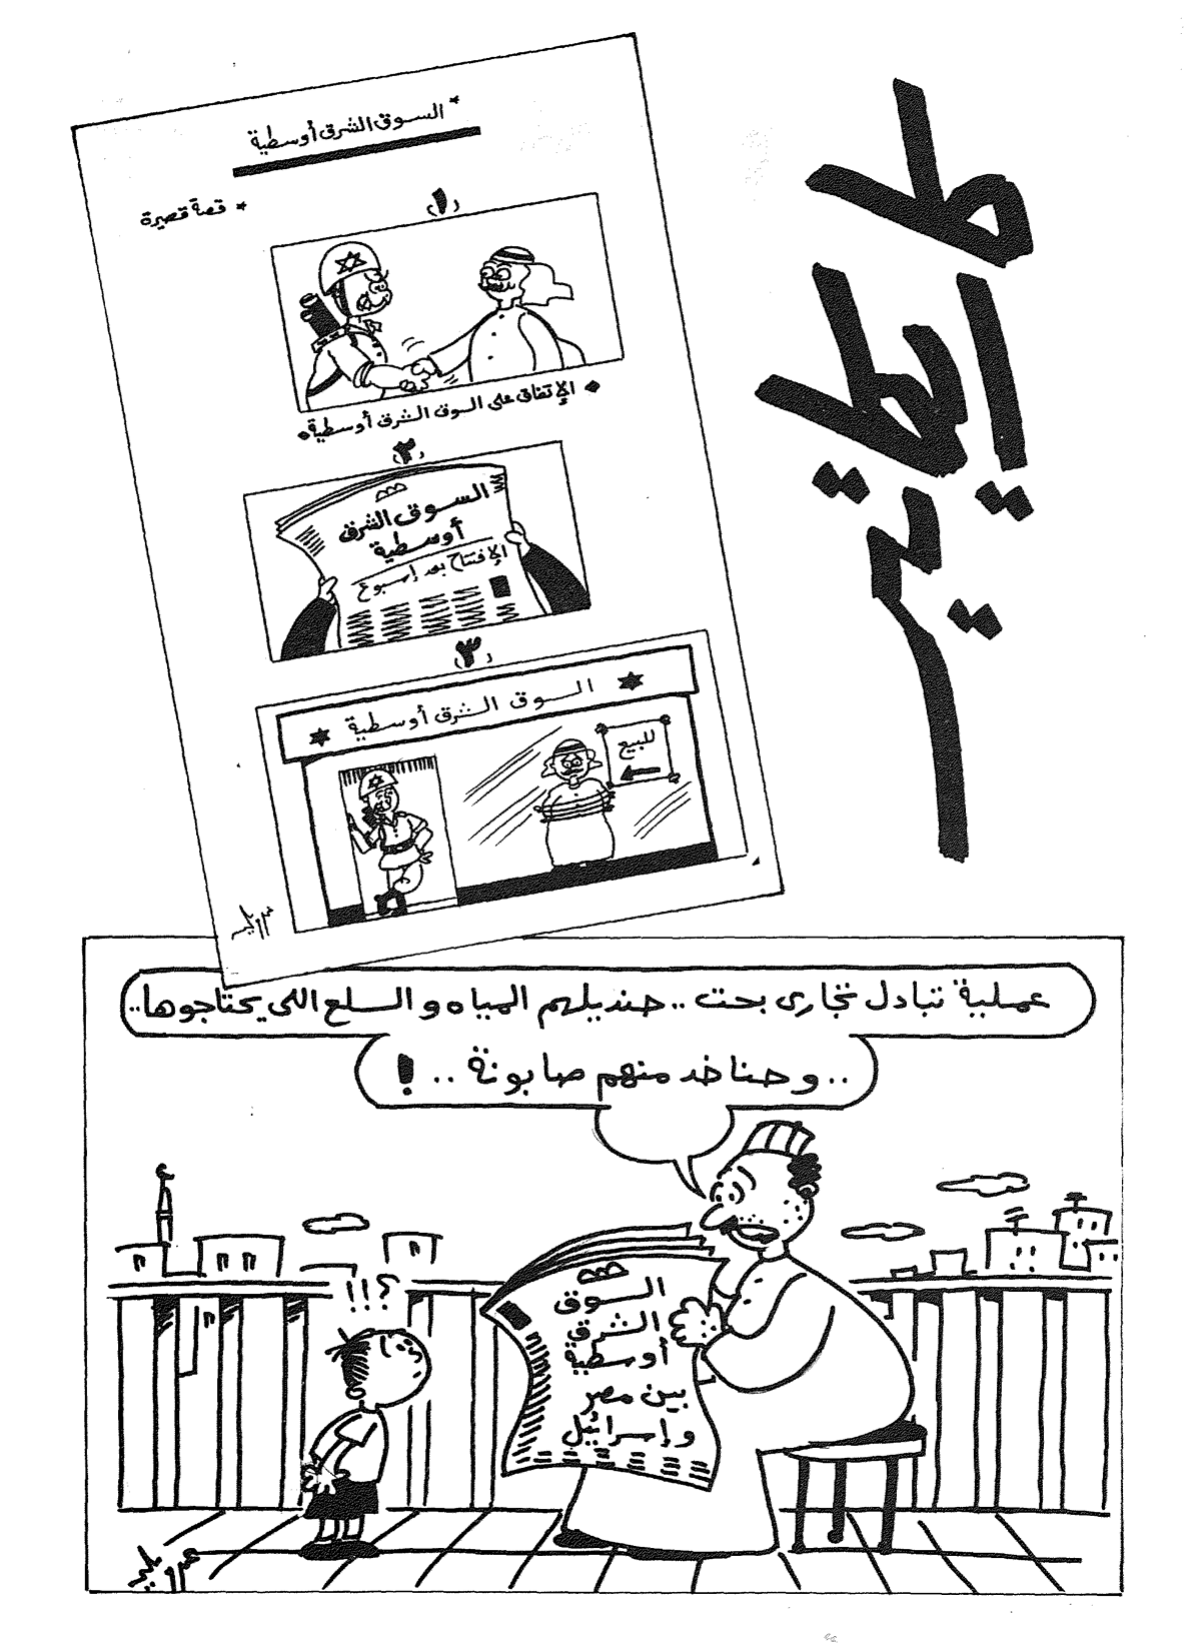 كاريكاتير
* السوق الشرق أوسطية
* قصة قصيرة
(١)
الإتفاق على السوق الشرق أوسطية.
(٢)
السوق الشرق
أوسطية
الإفتتاح بعد إسبوع
(٣)
السوق الشرق أوسطية
للبيع
عملية تبادل تجارى بحت .. حنديلهم المياه والسلع اللى يحتاجوها..
.. وحناخد منهم صابونة .. !
؟!!
السوق
الشرق
أوسطية
بين مصر
وإسرائيل